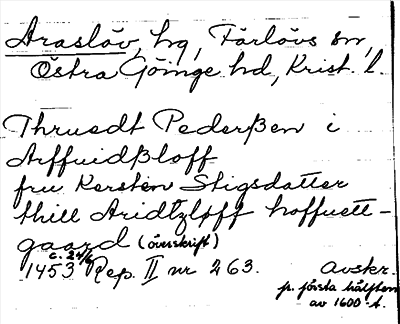 Araslöv, hg, Färlövs sn,
Östra Göinge hd, Krist. l.
Thruedt Pederßen i
Arffuidßloff
fru Kersten Stigsdatter
thill Aridtzløff hoffuett-
gaard (överskrift)
c. 24/6
1453 Rep. II nr 263.
avskr.
fr. första hälften
av 1600-t.